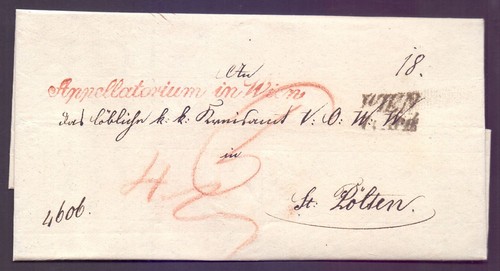 An
18.
Appellatorium in Wien
WIEN
das löbliche k: k: Kreisamt V: O: W: W:
in
St: Pölten.
4606.